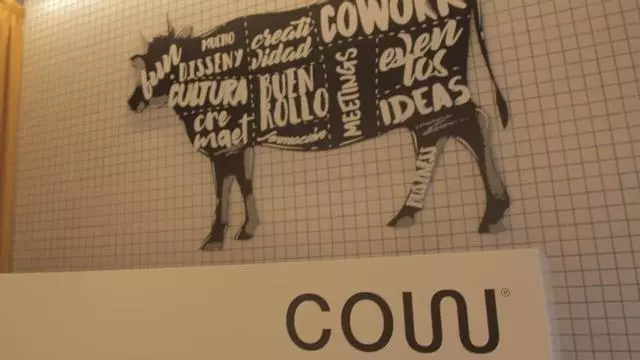 COWORK
fun
MUCHO
DISSENY
creati
vidad
even
tos
CULTURA
BUEN
ROLLO
MEETINGS
IDEAS
cre
ma
COW